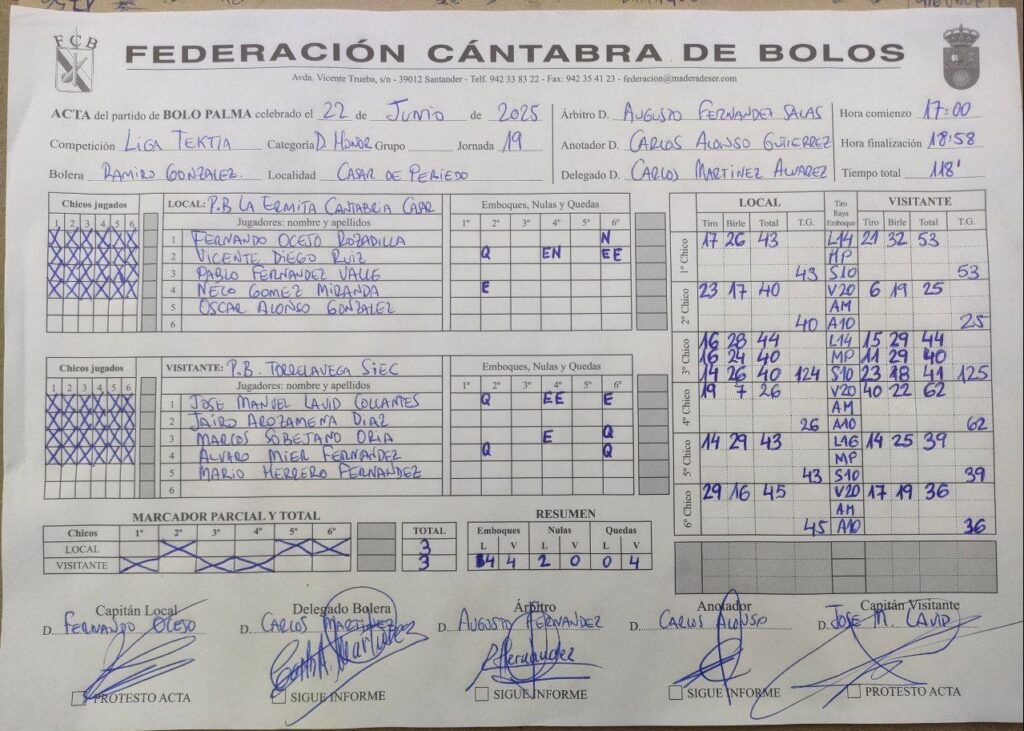 FCB
FEDERACIÓN CÁNTABRA DE BOLOS
Avda. Vicente Trueba, s/n - 39012 Santander - Telf. 942 33 83 22 - Fax: 942 35 41 23 - federacion@maderadeser.com
ACTA del partido de BOLO PALMA celebrado el 22 de JUNIO de 2025 Árbitro D. AUGUSTO FERNANDEZ SALAS Hora comienzo 17:00
Competición LIGA TEKTIA Categoría D. HONOR Grupo Jornada 19 Anotador D. CARLOS ALONSO GUTIERREZ Hora finalización 18:58
Bolera RAMIRO GONZALEZ. Localidad CASAR DE PERIEDO Delegado D. CARLOS MARTINEZ ALVAREZ Tiempo total 118'
Chicos jugados LOCAL: P.B LA ERMITA CANTABRIA CASAR Emboques, Nulas y Quedas
1 2 3 4 5 6 Jugadores: nombre y apellidos 1º 2º 3º 4º 5º 6º
1 FERNANDO OCEJO ROZADILLA N
2 VICENTE DIEGO RUIZ Q EN EE
3 PABLO FERNANDEZ VALLE
4 NELO GOMEZ MIRANDA E
5 OSCAR ALONSO GONZALEZ
6
Chicos jugados VISITANTE: P.B. TORRELAVEGA SIEC Emboques, Nulas y Quedas
1 2 3 4 5 6 Jugadores: nombre y apellidos 1º 2º 3º 4º 5º 6º
1 JOSE MANUEL LAVID COLLANTES Q EE E
2 JAIRO AROZAMENA DIAZ
3 MARCOS SOBEJANO ORIA E Q
4 ALVARO MIER FERNANDEZ Q Q
5 MARIO HERRERO FERNANDEZ
6
LOCAL Tiro Raya Emboque VISITANTE
Tiro Birle Total T.G. Tiro Birle Total T.G.
1º Chico 17 26 43 L14 21 32 53
MP
43 S10 53
2º Chico 23 17 40 V20 6 19 25
AM
40 A10 25
3º Chico 16 28 44 L14 15 29 44
16 24 40 MP 11 29 40
14 26 40 124 S10 23 18 41 125
4º Chico 19 7 26 V20 40 22 62
AM
26 A10 62
5º Chico 14 29 43 L16 14 25 39
MP
43 S10 39
6º Chico 29 16 45 V20 17 19 36
AM
45 A10 36
MARCADOR PARCIAL Y TOTAL
Chicos 1º 2º 3º 4º 5º 6º TOTAL
LOCAL 3
VISITANTE 3
RESUMEN
Emboques Nulas Quedas
L V L V L V
4 4 2 0 0 4
Capitán Local Delegado Bolera Árbitro Anotador Capitán Visitante
D. FERNANDO OCEJO D. CARLOS MARTINEZ D. AUGUSTO FERNANDEZ D. CARLOS ALONSO D. JOSE M. LAVID
PROTESTO ACTA SIGUE INFORME SIGUE INFORME SIGUE INFORME PROTESTO ACTA